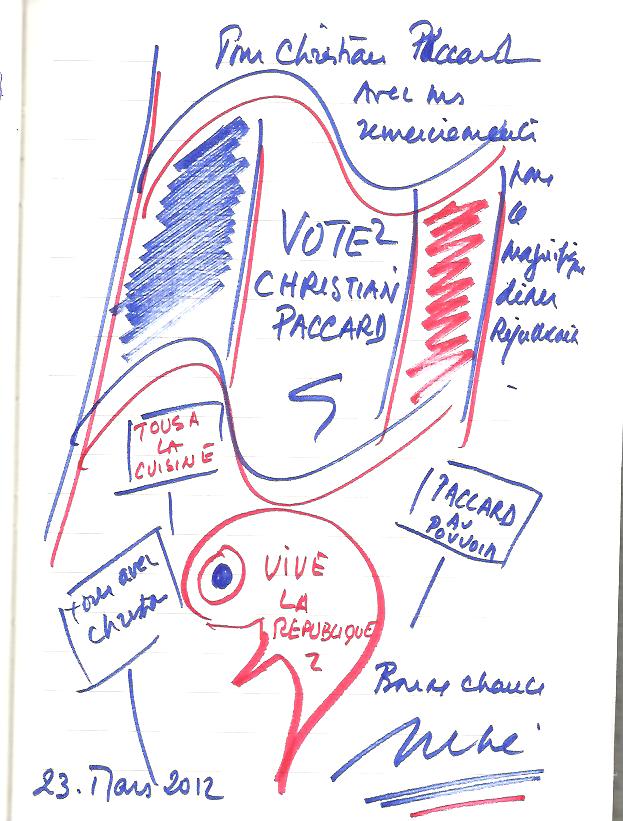 Pour Christian Paccard
Avec mes
remerciements
pour
le
magnifique
dîner
Républicain
VOTEZ
CHRISTIAN
PACCARD
TOUS A
LA
CUISINE
PACCARD
AU
POUVOIR
Tous avec
Christian
VIVE
LA
REPUBLIQUE
Bonne chance
23. Mars 2012